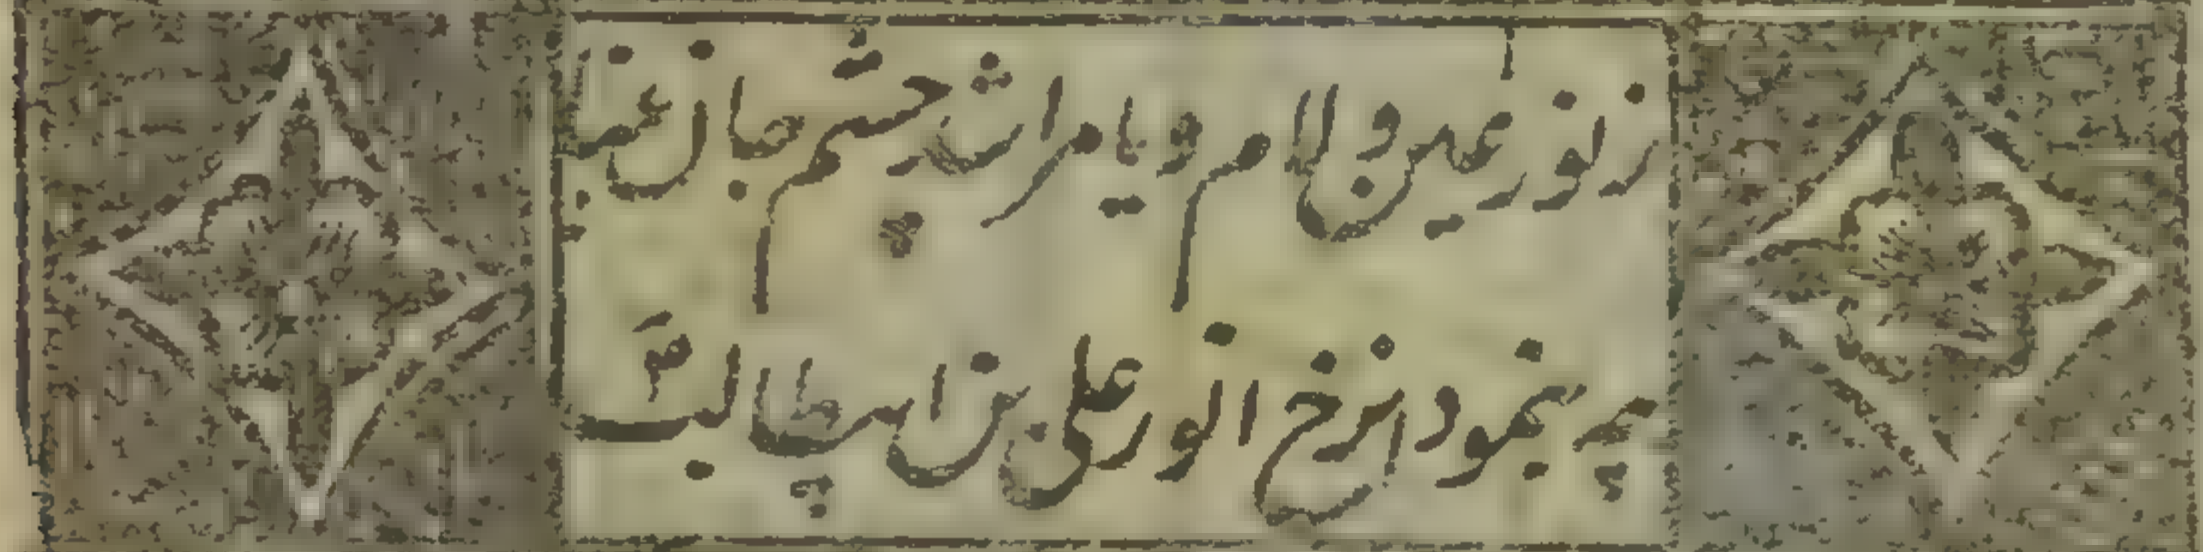 ز نور عین و لام و یا مر است چشم جان غیب
چه بنمود از رخ انور علی بن ابیطالب